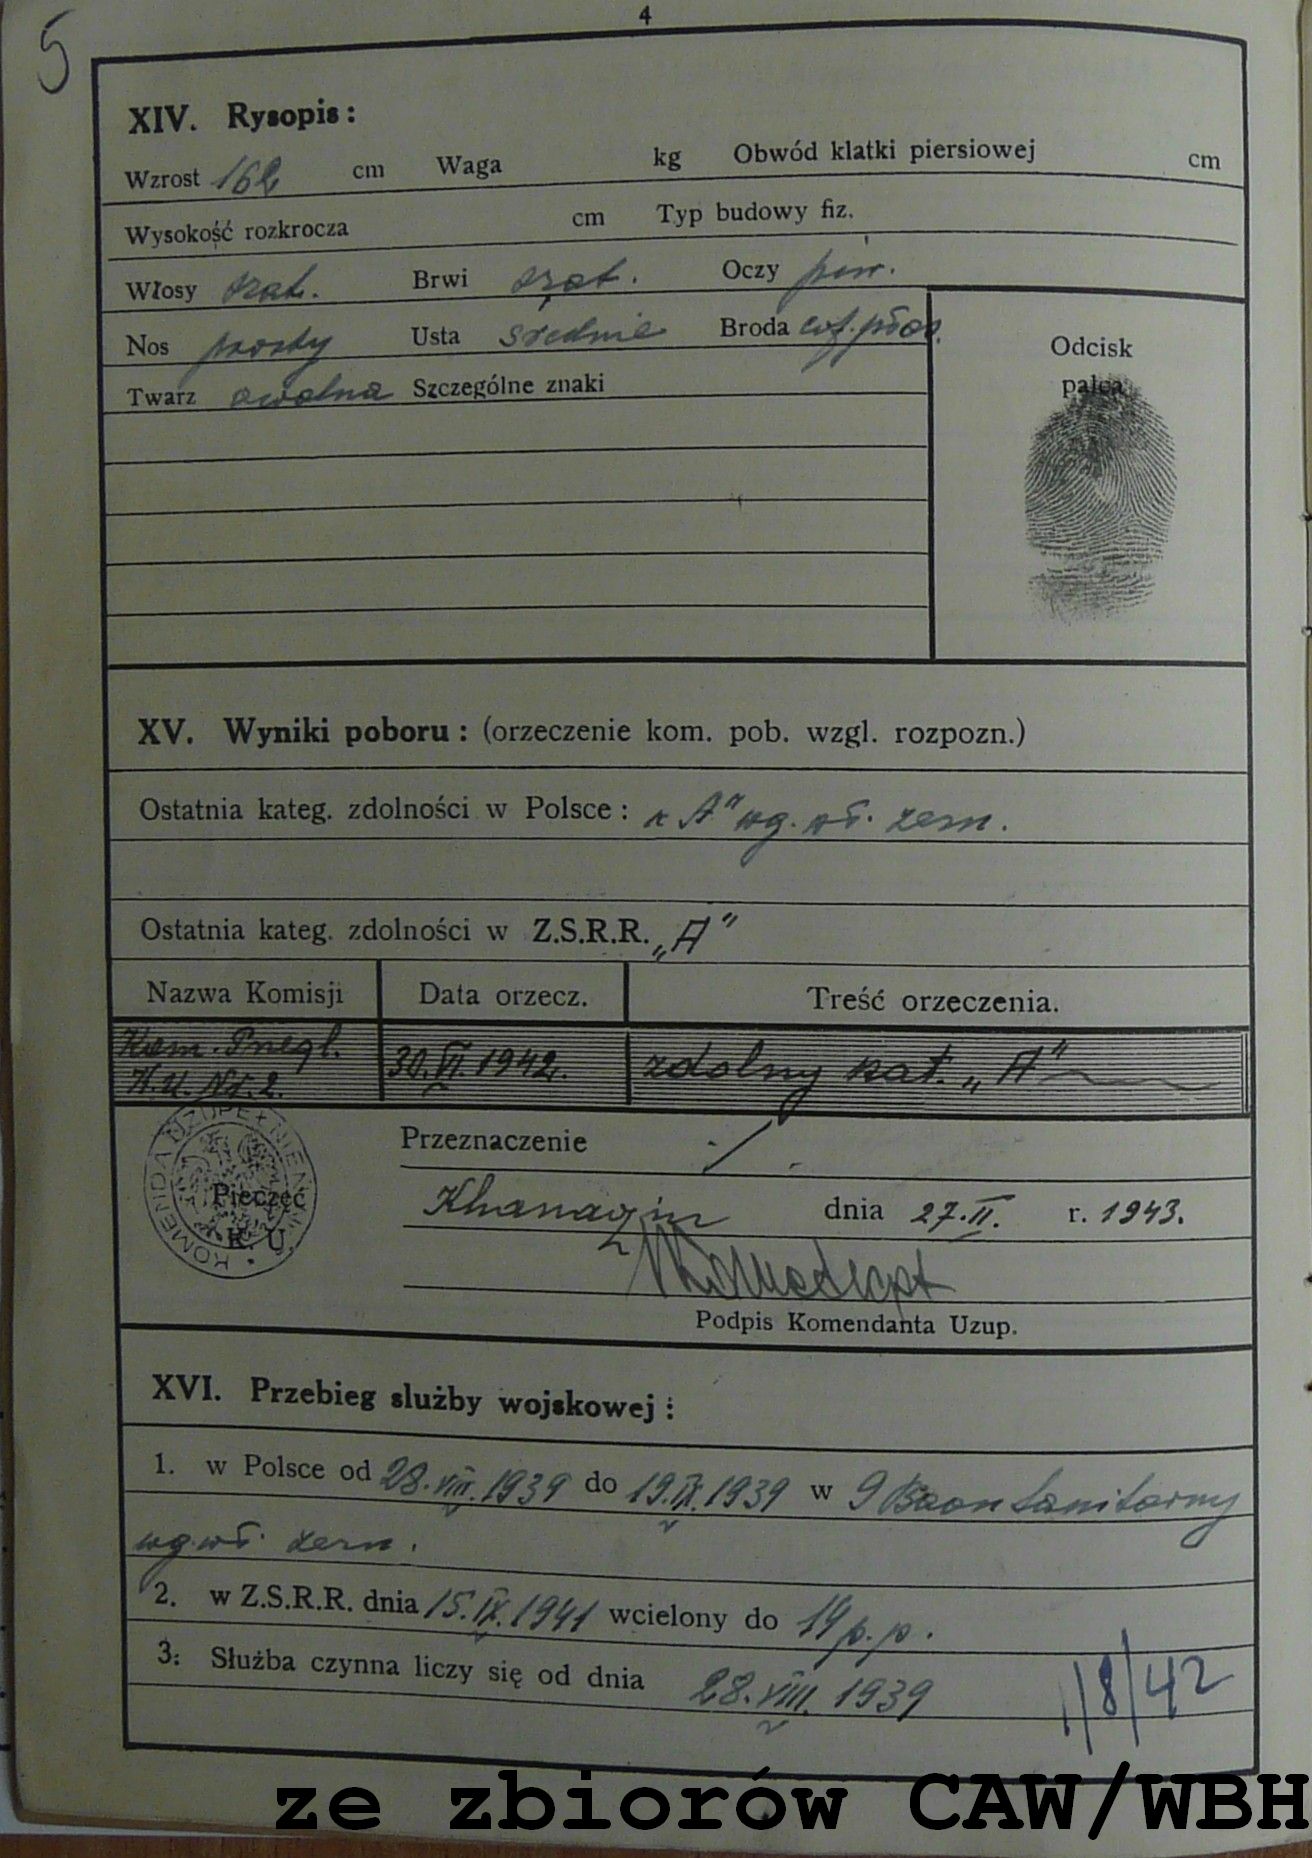 4
5
XIV. Rysopis :
Wzrost 162 cm Waga kg Obwód klatki piersiowej cm
Wysokość rozkrocza cm Typ budowy fiz.
Włosy szat. Brwi szat. Oczy piw.
Nos prosty Usta średnie Broda cof. płas.
Twarz owalna Szczególne znaki
Odcisk
palca
XV. Wyniki poboru : (orzeczenie kom. pob. wzgl. rozpozn.)
Ostatnia kateg. zdolności w Polsce : „A" wg. wł. zezn.
Ostatnia kateg. zdolności w Z.S.R.R. „A"
Nazwa Komisji Data orzecz. Treść orzeczenia.
Kom. Przegl. 30.VI.1942. zdolny kat. „A"
K.U. Nr. 2.
KOMENDA UZUPEŁNIEŃ
Pieczęć
K. U.
Przeznaczenie
Khanaqin dnia 27.II. r. 1943.
Podpis Komendanta Uzup.
XVI. Przebieg służby wojskowej :
1. w Polsce od 28.VIII.1939 do 19.IX.1939 w 9 Baon Sanitarny
wg. wł. zezn.
2. w Z.S.R.R. dnia 15.IX.1941 wcielony do 14 p.p.
3. Służba czynna liczy się od dnia 28.VIII. 1939
1/8/42
ze zbiorów CAW/WBH